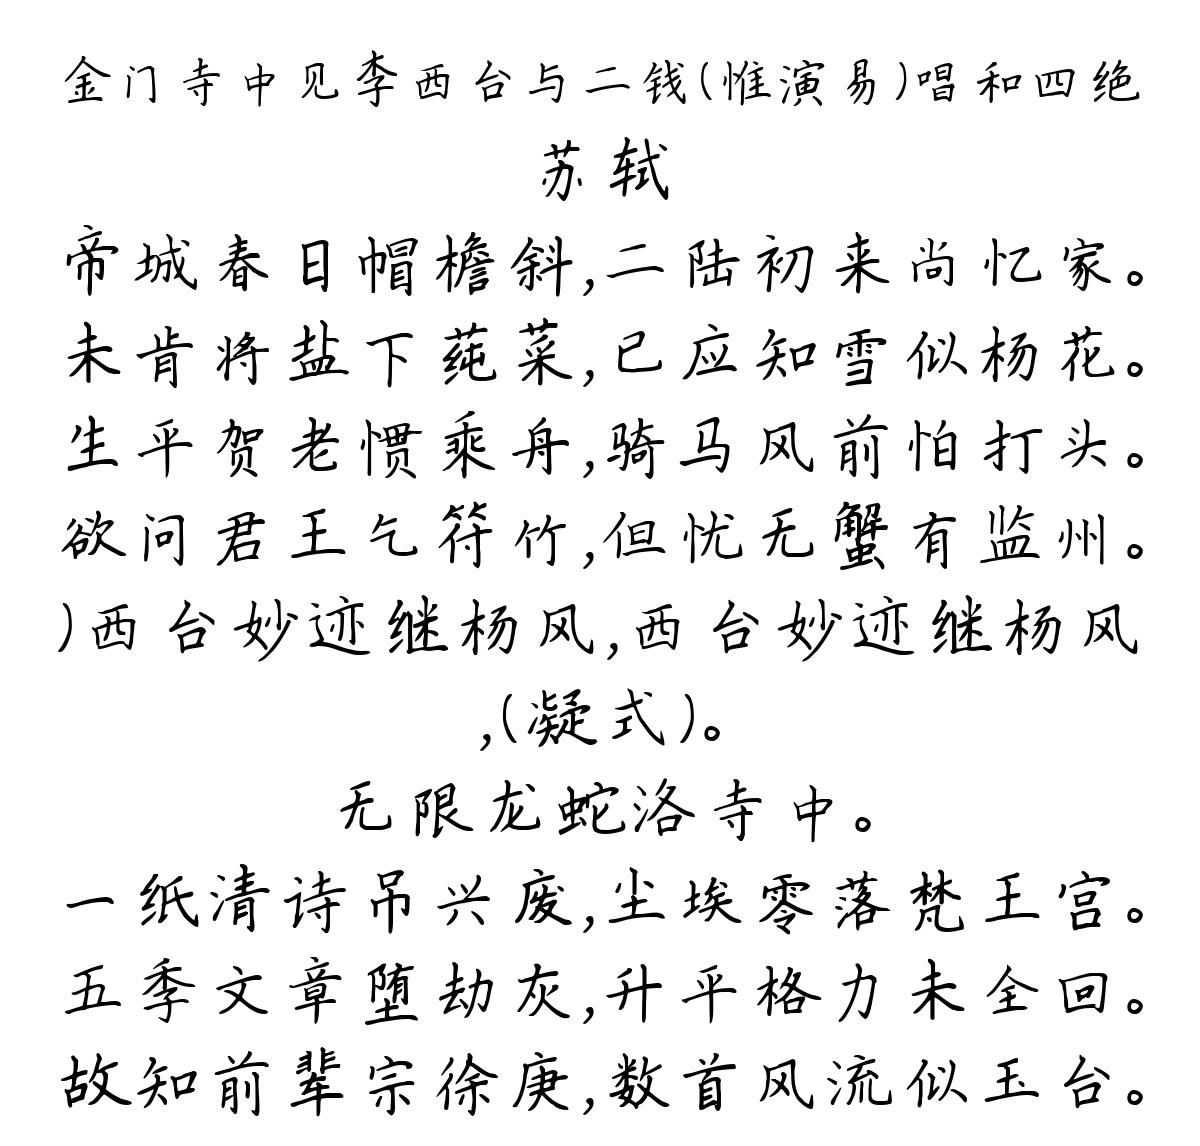 金门寺中见李西台与二钱(惟演易)唱和四绝
苏轼
帝城春日帽檐斜,二陆初来尚忆家。
未肯将盐下莼菜,已应知雪似杨花。
生平贺老惯乘舟,骑马风前怕打头。
欲问君王乞符竹,但忧无蟹有监州。
)西台妙迹继杨风,西台妙迹继杨风
,(凝式)。
无限龙蛇洛寺中。
一纸清诗吊兴废,尘埃零落梵王宫。
五季文章堕劫灰,升平格力未全回。
故知前辈宗徐庾,数首风流似玉台。